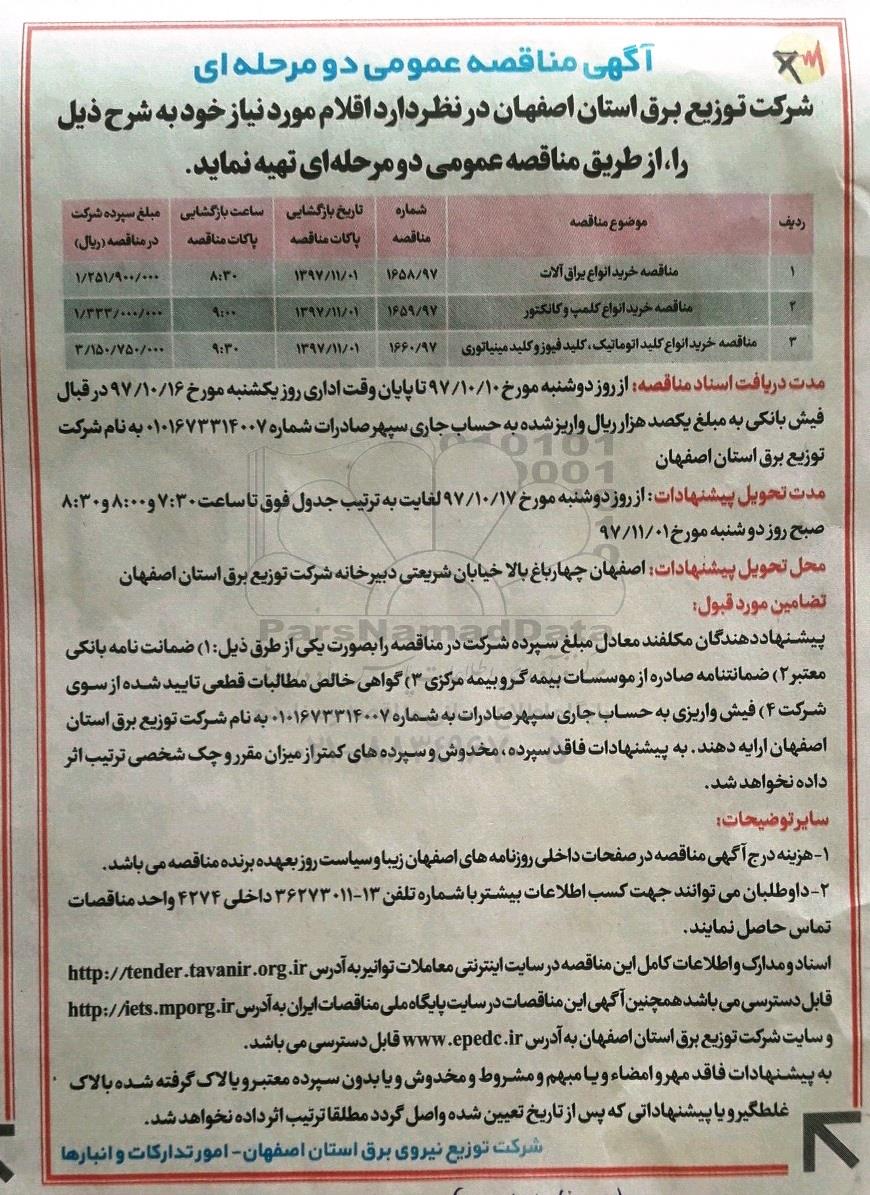 آگهی مناقصه عمومی دو مرحله ای
شرکت توزیع برق استان اصفهان در نظر دارد اقلام مورد نیاز خود به شرح ذیل
را، از طریق مناقصه عمومی دو مرحله‌ای تهیه نماید.
ردیف موضوع مناقصه شماره مناقصه تاریخ بازگشایی پاکات مناقصه ساعت بازگشایی پاکات مناقصه مبلغ سپرده شرکت در مناقصه (ریال)
۱ مناقصه خرید انواع یراق آلات ۱۶۵۸/۹۷ ۱۳۹۷/۱۱/۰۱ ۸:۳۰ ۱/۲۵۱/۹۰۰/۰۰۰
۲ مناقصه خرید انواع کلمپ و کانکتور ۱۶۵۹/۹۷ ۱۳۹۷/۱۱/۰۱ ۹:۰۰ ۱/۳۳۳/۰۰۰/۰۰۰
۳ مناقصه خرید انواع کلید اتوماتیک، کلید فیوز و کلید مینیاتوری ۱۶۶۰/۹۷ ۱۳۹۷/۱۱/۰۱ ۹:۳۰ ۳/۱۵۰/۷۵۰/۰۰۰
مدت دریافت اسناد مناقصه: از روز دوشنبه مورخ ۹۷/۱۰/۱۰ تا پایان وقت اداری روز یکشنبه مورخ ۹۷/۱۰/۱۶ در قبال
فیش بانکی به مبلغ یکصد هزار ریال واریز شده به حساب جاری سپهر صادرات شماره ۰۱۰۱۶۷۳۳۱۴۰۰۷ به نام شرکت
توزیع برق استان اصفهان
مدت تحویل پیشنهادات: از روز دوشنبه مورخ ۹۷/۱۰/۱۷ لغایت به ترتیب جدول فوق تا ساعت ۷:۳۰ و ۸:۰۰ و ۸:۳۰
صبح روز دو شنبه مورخ ۹۷/۱۱/۰۱
محل تحویل پیشنهادات: اصفهان چهارباغ بالا خیابان شریعتی دبیرخانه شرکت توزیع برق استان اصفهان
تضامین مورد قبول:
پیشنهاد دهندگان مکلفند معادل مبلغ سپرده شرکت در مناقصه را بصورت یکی از طرق ذیل: ۱) ضمانت نامه بانکی
معتبر ۲) ضمانتنامه صادره از موسسات بیمه گر و بیمه مرکزی ۳) گواهی خالص مطالبات قطعی تایید شده از سوی
شرکت ۴) فیش واریزی به حساب جاری سپهر صادرات به شماره ۰۱۰۱۶۷۳۳۱۴۰۰۷ به نام شرکت توزیع برق استان
اصفهان ارایه دهند. به پیشنهادات فاقد سپرده، مخدوش و سپرده های کمتر از میزان مقرر و چک شخصی ترتیب اثر
داده نخواهد شد.
سایر توضیحات:
۱-هزینه درج آگهی مناقصه در صفحات داخلی روزنامه های اصفهان زیبا و سیاست روز بعهده برنده مناقصه می باشد.
۲-داوطلبان می توانند جهت کسب اطلاعات بیشتر با شماره تلفن ۱۳-۳۶۲۷۳۰۱۱ داخلی ۴۲۷۴ واحد مناقصات
تماس حاصل نمایند.
اسناد و مدارک و اطلاعات کامل این مناقصه در سایت اینترنتی معاملات توانیر به آدرس http://tender.tavanir.org.ir
قابل دسترسی می باشد همچنین آگهی این مناقصات در سایت پایگاه ملی مناقصات ایران به آدرس http://iets.mporg.ir
و سایت شرکت توزیع برق استان اصفهان به آدرس www.epedc.ir قابل دسترسی می باشد.
به پیشنهادات فاقد مهر و امضاء و یا مبهم و مشروط و مخدوش و یا بدون سپرده معتبر و یا لاک گرفته شده با لاک
غلطگیر و یا پیشنهاداتی که پس از تاریخ تعیین شده واصل گردد مطلقا ترتیب اثر داده نخواهد شد.
شرکت توزیع نیروی برق استان اصفهان- امور تدارکات و انبارها
ParsNamadData